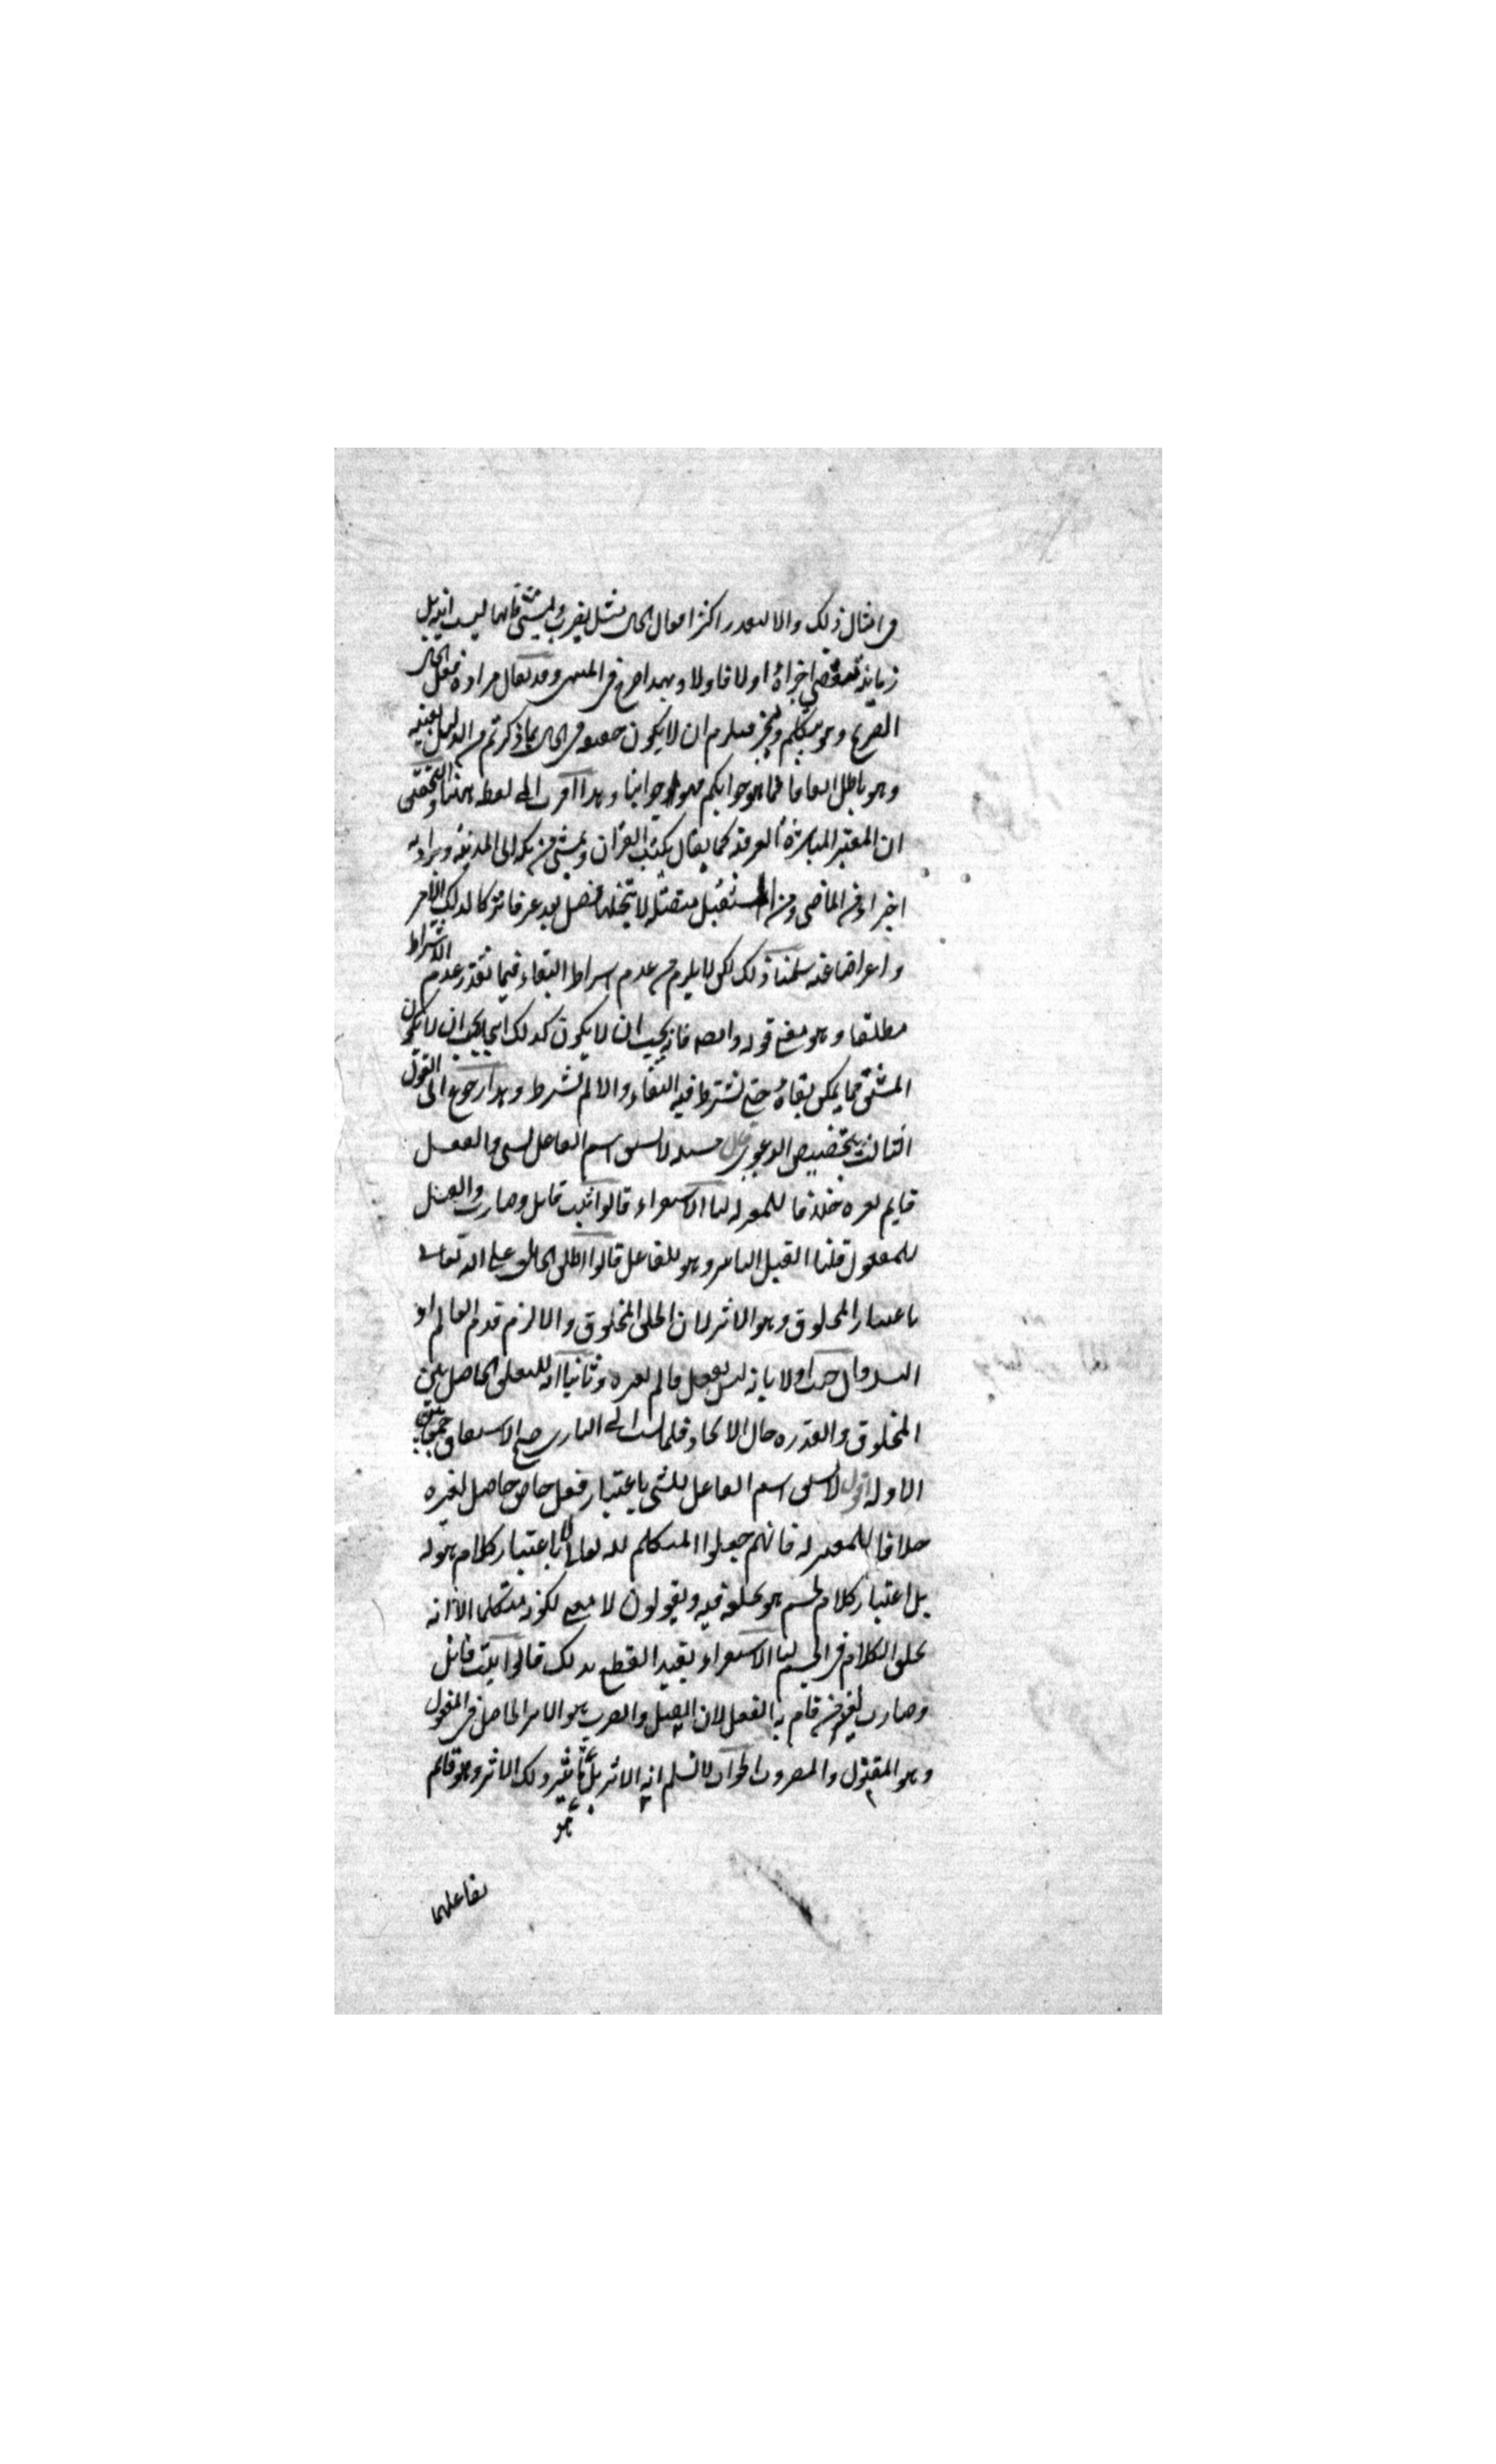 في امثال ذلك والا لتعذر اكثر افعال الحال مثل يضرب ويمشي فانها ليست آنية بل
زمانية تنقضي اجزاؤه اولا فاولا وبهذا صرح في المنتهى وقد يقال مراده فعل الحال
المصرح وهو يتكلم ويخبر فيلزم ان لا يكون حقيقة في الحال بما ذكرتم من الدليل بعينه
وهو باطل اتفاقا فما هو جوابكم فهو جوابنا وهذا اقرب الى لفظه ههنا والتحقيق
ان المعتبر المباشرة العرفية كما يقال يكتب القرآن ويمشي من مكة الى المدينة ويراد به
اجزاء من الماضي ومن المستقبل متصلة لا يتخللها فصل يعد عرفا تركا لذلك الامر
واعراضا عنه سلمنا ذلك لكن لا يلزم من عدم اشتراط البقاء فيما تعذر عدم الاشتراط
مطلقا وهو معنى قوله وايضا فانه يجب ان لا يكون كذلك اي يجب ان لا يكون
المشتق مما يمكن بقاؤه حتى نشترط فيه البقاء والا لم نشرط وهذا رجوع الى القول
الثالث بتخصيص الدعوى قال مسئلة لا يشتق اسم الفاعل لشي والفعل
قايم بغيره خلافا للمعتزلة لنا الاستقراء قالوا ثبت قاتل وضارب والقتل
للمفعول قلنا القتل التاثير وهو للفاعل قالوا اطلق الخالق على الله تعالى
باعتبار المخلوق وهو الاثر لان الخلق المخلوق والا لزم قدم العالم او
التسلسل اجيب اولا بانه ليس بفعل قائم بغيره وثانيا انه للتعلق الحاصل بين
المخلوق والقدرة حال الايجاد فلما نسب الى الباري صح الاشتقاق جمعا بين
الادلة اقول لا يشتق اسم الفاعل للشي باعتبار فعل خاص حاصل لغيره
خلافا للمعتزلة فانهم جعلوا المتكلم لله تعالى لا باعتبار كلام هو له
بل اعتبار كلام لجسم هو يخلقه فيه ويقولون لا معنى لكونه متكلما الا انه
يخلق الكلام في الجسم لنا الاستقراء يفيد القطع بذلك قالوا ثبت قاتل
وضارب لغير من قام به الفعل لان القتل والضرب هو الاثر الحاصل في المفعول
وهو المقتول والمضروب الجواب لا نسلم انه الاثر بل تاثير ذلك الاثر وهو قائم
هو
بفاعلهما